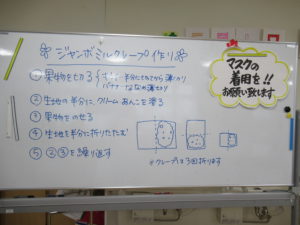 ジャンボミルクレープ作り
① 果物を切る
半分にしてから薄切り
バナナ ななめ薄切り
② 生地の半分に、クリーム あんこを塗る
③ 果物をのせる
④ 生地を半分に折りたたむ
⑤ ②③を繰り返す
※クレープは3回折ります
マスクの
着用を!!
お願い致します